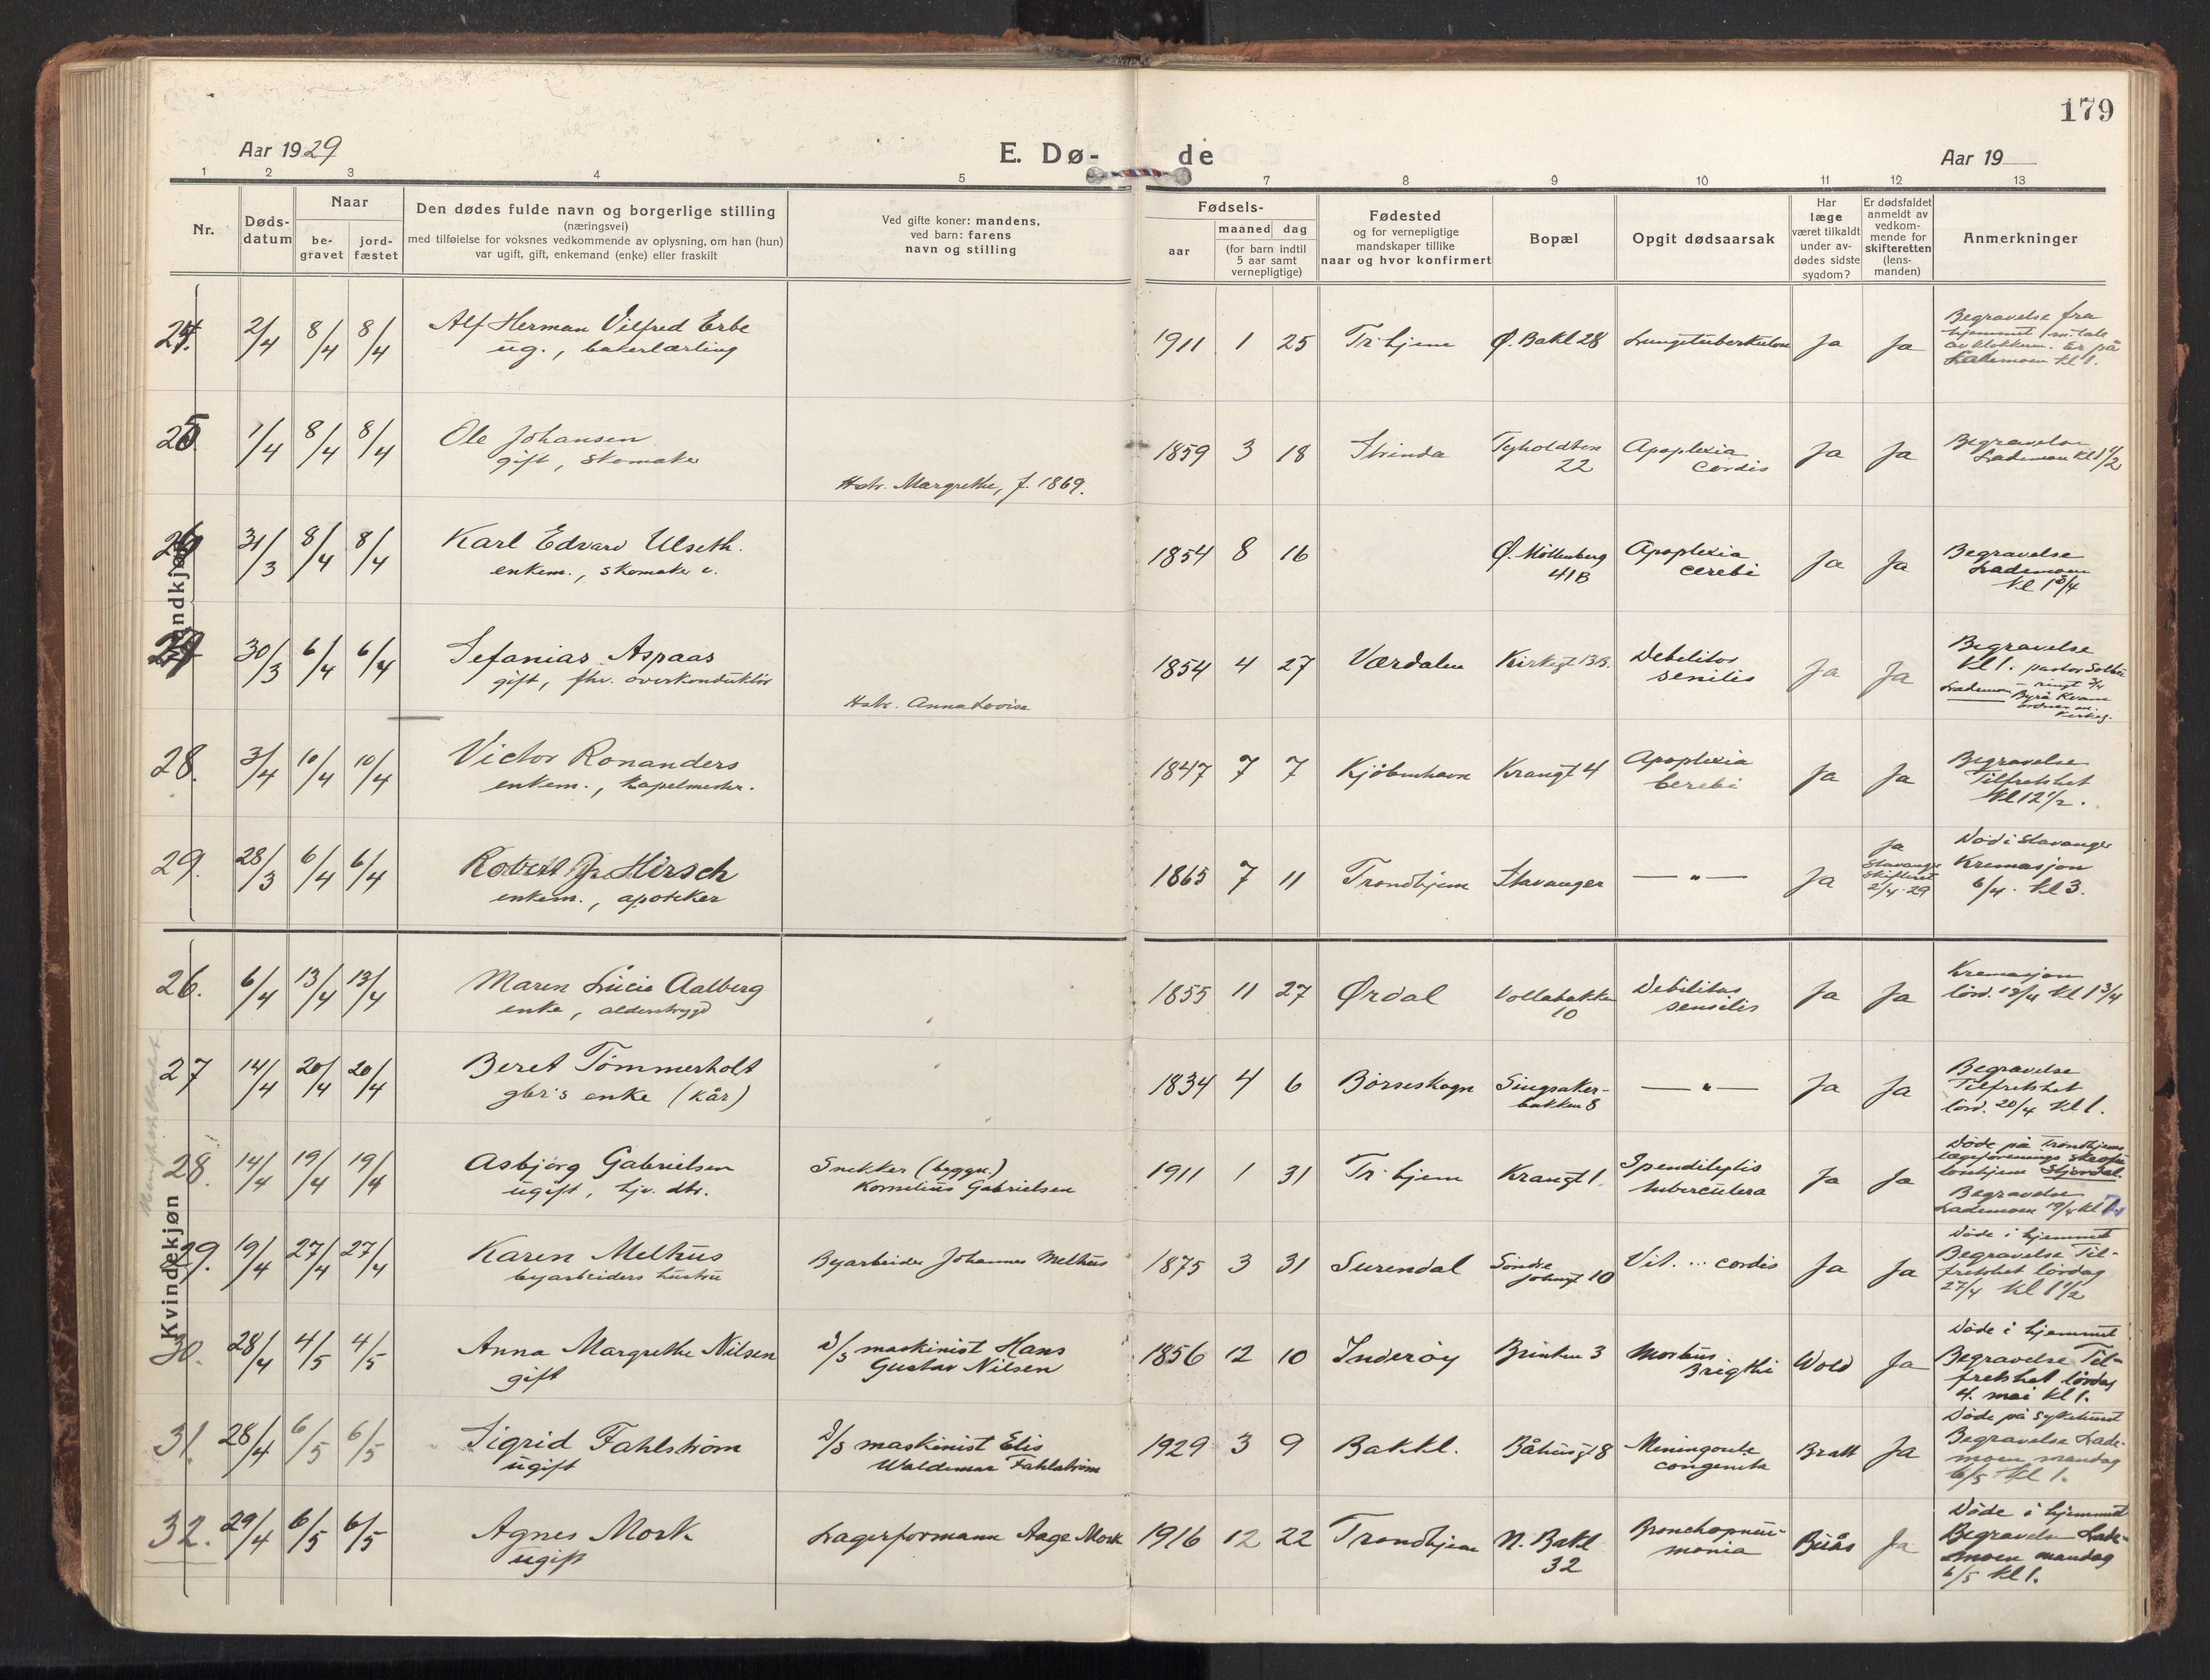 179
Aar 1929
E. Dø-
de
Aar 19
1 2 3 4 5 7 8 9 10 11 12 13
Nr.
Døds-
datum
Naar
be-
gravet
jord-
fæstet
Den dødes fulde navn og borgerlige stilling
(næringsvei)
med tilføielse for voksnes vedkommende av oplysning, om han (hun)
var ugift, gift, enkemand (enke) eller fraskilt
Ved gifte koner: mandens,
ved barn: farens
navn og stilling
Fødsels-
aar
maaned dag
(for barn indtil
5 aar samt
vernepligtige)
Fødested
og for vernepligtige
mandskaper tillike
naar og hvor konfirmert
Bopæl
Opgit dødsaarsak
Har
læge
været tilkaldt
under av-
dødes sidste
sygdom?
Er dødsfaldet
anmeldt av
vedkom-
mende for
skifteretten
(lens-
manden)
Anmerkninger
Mandkjøn
24. 2/4 8/4 8/4 Alf Herman Vilfred Erbe
ug., bakerlærling
1911 1 25 Tr.hjem Ø. Bakl 28 Lungetuberkulose Ja Ja
Begravelse fra
hjemmet
av klokkeren. Er på
Lademoen kl 1.
25. 1/4 8/4 8/4 Ole Johansen
gift, skomaker
Hstr. Margrethe, f. 1869.
1859 3 18 Strinda Tyholdtvn
22
Apoplexia
Cordis
Ja Ja
Begravelse
Lademoen kl 1 1/2
26 31/3 8/4 8/4 Karl Edvard Ulseth.
enkem., skomaker
1854 8 16 Ø. Møllenberg
41B
Apoplexia
cerebi
Ja Ja
Begravelse
Lademoen
kl 1 3/4
27 30/3 6/4 6/4 Sefanias Aspaas
gift, fhv. overkonduktør
Hstr. Anna Lovise
1854 4 27 Værdalen Kirkegt 13B. Debilitas
senilis
Ja Ja
Begravelse
Kl 1. pastor
Lademoen - ringt 3/4
Byrå Kvam
ordner
28. 3/4 10/4 10/4 Victor Ronanders
enkem., kapelmester.
1847 7 7 Kjøbenhavn Krangt 4 Apoplexia
Cerebi
Ja Ja
Begravelse
Tilfredshet
Kl 12 1/2.
29. 28/3 6/4 6/4 Robert Hirsch
enkem., apoteker
1865 7 11 Trondhjem Stavanger — " — Ja
Ja
Stavanger
skifteret
2/4 - 29
Død i Stavanger
Kremasjon
6/4. kl 3.
Kvindekjøn
26. 6/4 13/4 13/4 Maren Lucie Aalberg
enke, alderstrygd
1855 11 27 Ørdal Vollabakken
10
Debilitas
senilis
Ja Ja
Kremasjon
lørd. 13/4 kl 1 3/4
27 14/4 20/4 20/4 Beret Tømmerholt
gbr's enke (kår)
1834 4 6 Børseskogn Singsaker-
bakken 8
— " — Ja Ja
Begravelse
Tilfredshet
lørd. 20/4 kl 1.
28. 14/4 19/4 19/4 Asbjørg Gabrielsen
ugift, hjv. dtr.
Snekker (byggn.)
Kornelius Gabrielsen
1911 1 31 Tr.hjem Krangt 1. Spondilytis
tuberculosa
Ja Ja
Døde på Trondhjems
lægeforenings
Stjørdal.
Begravelse
Lademoen 19/4 kl
29. 19/4 27/4 27/4 Karen Melhus
byarbeiders hustru
Byarbeider Johannes Melhus
1875 3 31 Surendal Søndre
10
Vit. ... cordis Ja Ja
Døde i hjemmet
Begravelse Til-
fredshet lørdag
27/4 kl 1 1/2
30. 28/4 4/5 4/5 Anna Margrethe Nilsen
gift
D/S maskinist Hans
Gustav Nilsen
1856 12 10 Inderøy Brinken 3 Morbus
Brigthi
Wold Ja
Døde i hjemmet
Begravelse Til-
fredshet lørdag
4. mai kl 1.
31. 28/4 6/5 6/5 Sigrid Fahlstrøm
ugift
D/S maskinist Elis
Waldemar Fahlstrøm
1929 3 9 Bakkl. Båhusgt 8 Meningocele
congenita
Bratt Ja
Døde på Sykehuset
Begravelse Lade-
moen mandag
6/5 kl 1.
32. 29/4 6/5 6/5 Agnes Mork
ugift
Lagerformann Aage Mork
1916 12 22 Trondhjem N. Bakl
32
Bronchopneu-
monia
Buås Ja
Døde i hjemmet
Begravelse Lade-
moen mandag
6/5 kl 1.